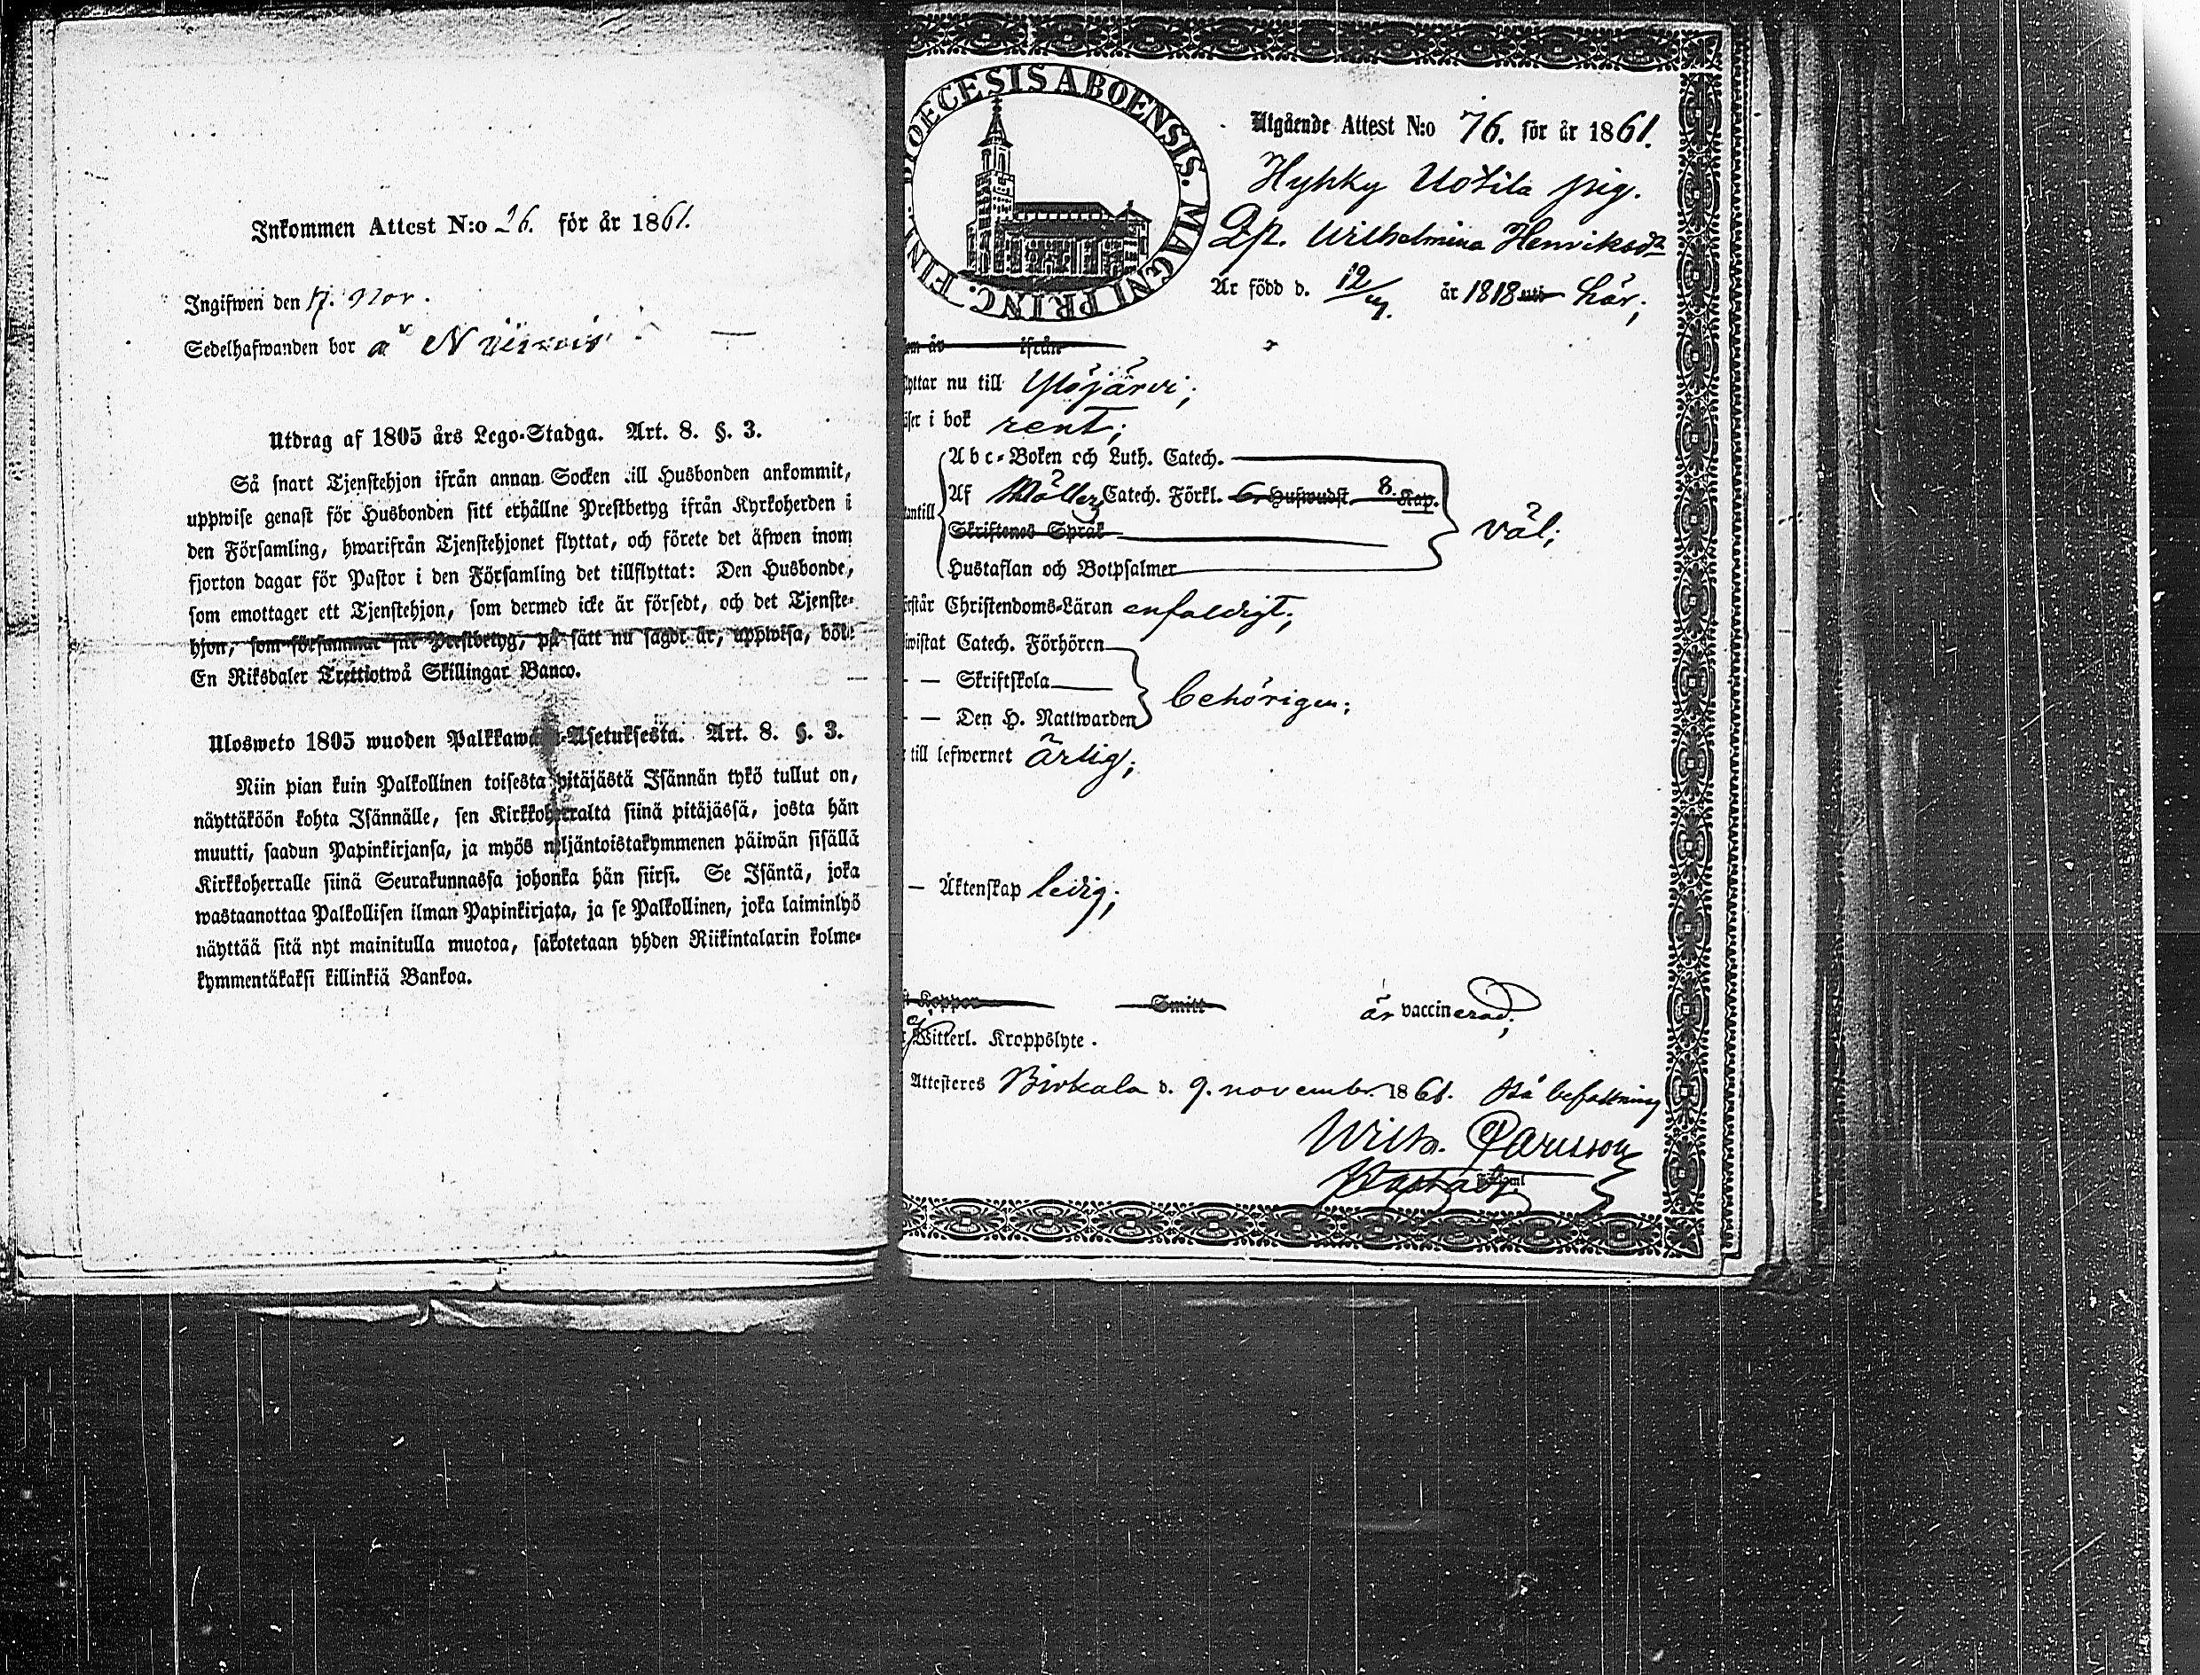 Inkommen Attest N:o 26. för år 1861.
Ingifwen den 17. Nov.
Sedelhafwanden bor å
Utdrag af 1805 års Lego-Stadga. Art. 8. §. 3.
Så snart Tjenstehjon ifrån annan Socken till Husbonden ankommit,
uppwise genast för Husbonden sitt erhållne Prestbetyg ifrån Kyrkoherden i
den Församling, hwarifrån Tjenstehjonet flyttat, och förete det äfwen inom
fjorton dagar för Pastor i den Församling det tillflyttat: Den Husbonde,
som emottager ett Tjenstehjon, som dermed icke är försedt, och det Tjenste-
hjon, som försummar sitt Prestbetyg, på sätt nu sagdt är, uppwisa, böte
En Riksdaler Trettiotwå Skillingar Banco.
Ulosweto 1805 wuoden Palkkawäen-Asetuksesta. Art. 8. §. 3.
Niin pian kuin Palkollinen toisesta pitäjästä Isännän tykö tullut on,
näyttäköön kohta Isännälle, sen Kirkkoherralta siinä pitäjässä, josta hän
muutti, saadun Papinkirjansa, ja myös neljäntoistakymmenen päiwän sisällä
Kirkkoherralle siinä Seurakunnassa johonka hän siirsi. Se Isäntä, joka
wastaanottaa Palkollisen ilman Papinkirjata, ja se Palkollinen, joka laiminlyö
näyttää sitä nyt mainitulla muotoa, sakotetaan yhden Riikintalarin kolme-
kymmentäkaksi killinkiä Bankoa.
DIOECESIS ABOENSIS. MAGNI PRINC. FINL.
Utgående Attest N:o 76. för år 1861.
Hyhky Uotila pig.
Dr. Wilhelmina Henriksdr
Är född d. 12/ år 1818 uti här;
ifrån
flyttar nu till Ylöjärvi;
läser i bok rent;
Abc-Boken och Luth. Catech.
Af Möllers Catech. Förkl. 6. Hufwudst. 8. Kap.
Skriftenes Språk
väl;
Hustaflan och Botpsalmer
förstår Christendoms-Läran enfaldigt;
bewistat Catech. Förhören
— — Skriftskola
behörigen;
— — Den H. Nattwarden
till lefwernet ärlig;
— Äktenskap ledig;
Koppor Smitt är vaccinerad;
Witterl. Kroppslyte.
Attesteres Birkala d. 9. november 1861. På befallning
Wilh. Carlsson